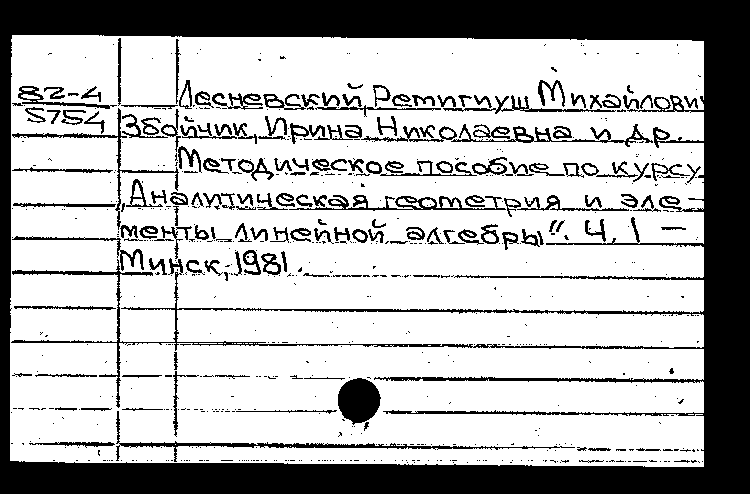 82-4
5754
Лесневский, Ремигиуш Михайлович
Збойчик, Ирина Николаевна и др.
Методическое пособие по курсу
„Аналитическая геометрия и эле-
менты линейной алгебры". Ч. 1 —
Минск, 1981.